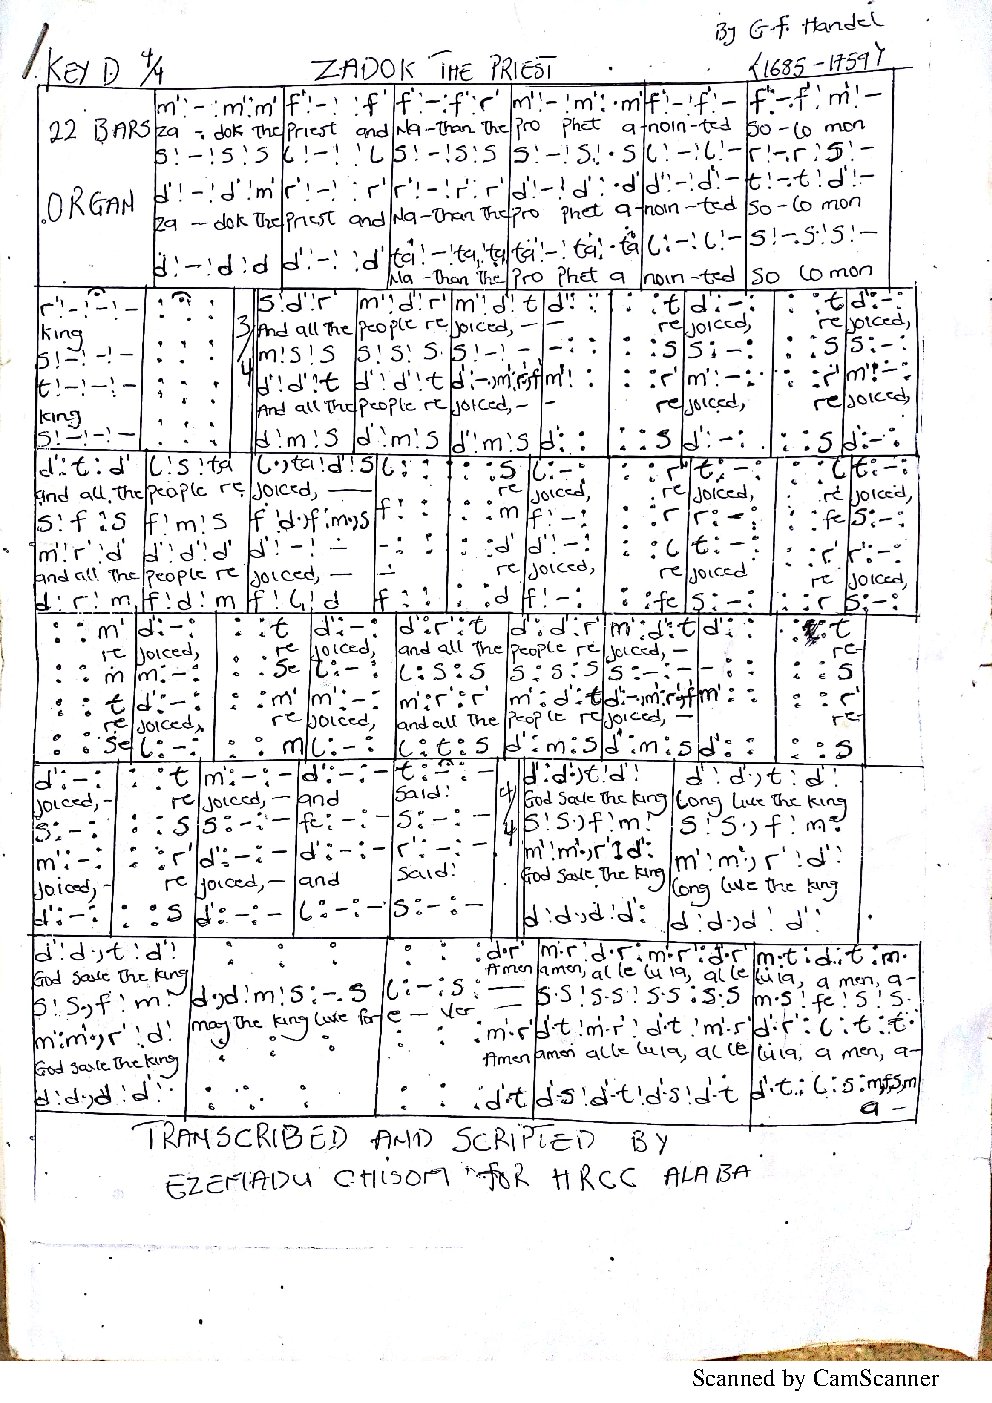 By G.F. Handel
KEY D 4/4 ZADOK THE PRIEST (1685-1759)
22 BARS
ORGAN
m':-:m':m' f':-: :f' f':-:f':r' m':-:m':.m' f':-:f':- f':-.f':m':-
Za - dok the Priest and Na-than the Pro phet a-noin-ted So-lo mon
s:-:s:s l:-: :l s:-:s:s s:-:s:.s l:-:l:- r:-.r:s:-
d':-:d':m' r':-: :r' r':-:r':r' d':-:d':.d' d':-:d':- t:-.t:d':-
Za - dok the Priest and Na-than the Pro phet a-noin-ted So-lo mon
d:-:d:d d':-: :d' ta:-:ta:ta ta:-:ta:.ta l:-:l:- s:-.s:s:-
Na-than the Pro phet a noin-ted So lo mon
r':-:-:- 3/4 s:d':r' m':d':r' m':d':t d': : : :t d':-: : :t d':-:
King And all the people re joiced, - - re joiced, re joiced,
s:-:-:- m:s:s s:s:s s:-:- -: : : :s s:-: : :s s:-:
t:-:-:- d':d':t d':d':t d':-.,m':r'.,f' m': : : :r' m':-: : :r' m':-:
King And all the people re joiced, - - re joiced, re joiced,
s:-:-:- d:m:s d:m:s d:m:s d: : : :s d:-: : :s d:-:
d':t:d' l:s:ta l.,ta:d':s l: : : :s l:-: : :r' t:-: : :l t:-:
and all the people re joiced, — re joiced, re joiced, re joiced,
s:f:s f:m:s f.d.,f:m.,s f: : : :m f:-: : :r r:-: : :fe s:-:
m':r':d' d':d':d' d':-:- -: : : :d' d':-: : :l t:-: : :r' r':-:
and all the people re joiced, — - re joiced, re joiced re joiced,
d:r:m f:d:m f:l:d f: : : :d f:-: : :fe s:-: : :r s:-:
: :m' d':-: : :t d':-: d':r':t d':d':r' m':d':t d': : : :t
re joiced, re joiced, and all the people re joiced, — re-
: :m m:-: : :se l:-: l:s:s s:s:s s:-:- : : : :s
: :t d':-: : :m' m':-: m':r':r' m':d':t d':-.,m':r'.,f' m': : : :r'
re joiced, re joiced, and all the people re joiced, — re-
: :se l:-: : :m l:-: l:t:s d':m:s d':m:s d': : : :s
d':-: : :t m':-:- d':-:- t:-:- 4/4 d':d'.,t:d': d':d'.,t:d':
joiced,- re joiced,- and said: God save the King Long live the King
s:-: : :s s:-:- fe:-:- s:-:- s:s.,f:m: s:s.,f:m:
m':-: : :r' d':-:- d':-:- r':-:- m':m'.,r':d': m':m'.,r':d':
joiced,- re joiced,- and said: God save the King Long live the King
d':-: : :s d':-:- l:-:- s:-:- d:d.,d:d: d:d.,d:d:
d':d'.,t:d': : : : : : :d'.r' m'.r':d'.r':m'.r':d'.r' m'.t:d'.:t:m'.
God save the King Amen amen, al le lu ia, al le lu ia, a men, a-
s:s.,f:m: d.,d:m:s:-.s l:-:s: s.s:s.s:s.s:s.s m.s:fe:s:s.
may the King live for e - ver
m':m'.,r':d': : : : : : :m'.r' d'.t:m'.r':d'.t:m'.r' d'.r':l:t:t.
God save the King Amen amen al le lu ia, al le lu ia, a men, a-
d:d.,d:d: : : : : : :d'.t d'.s:d'.t:d'.s:d'.t d'.t.:l:s:m.f,s.m
a -
TRANSCRIBED AND SCRIPTED BY
EZEMADU CHISOM FOR HRCC ALABA
Scanned by CamScanner